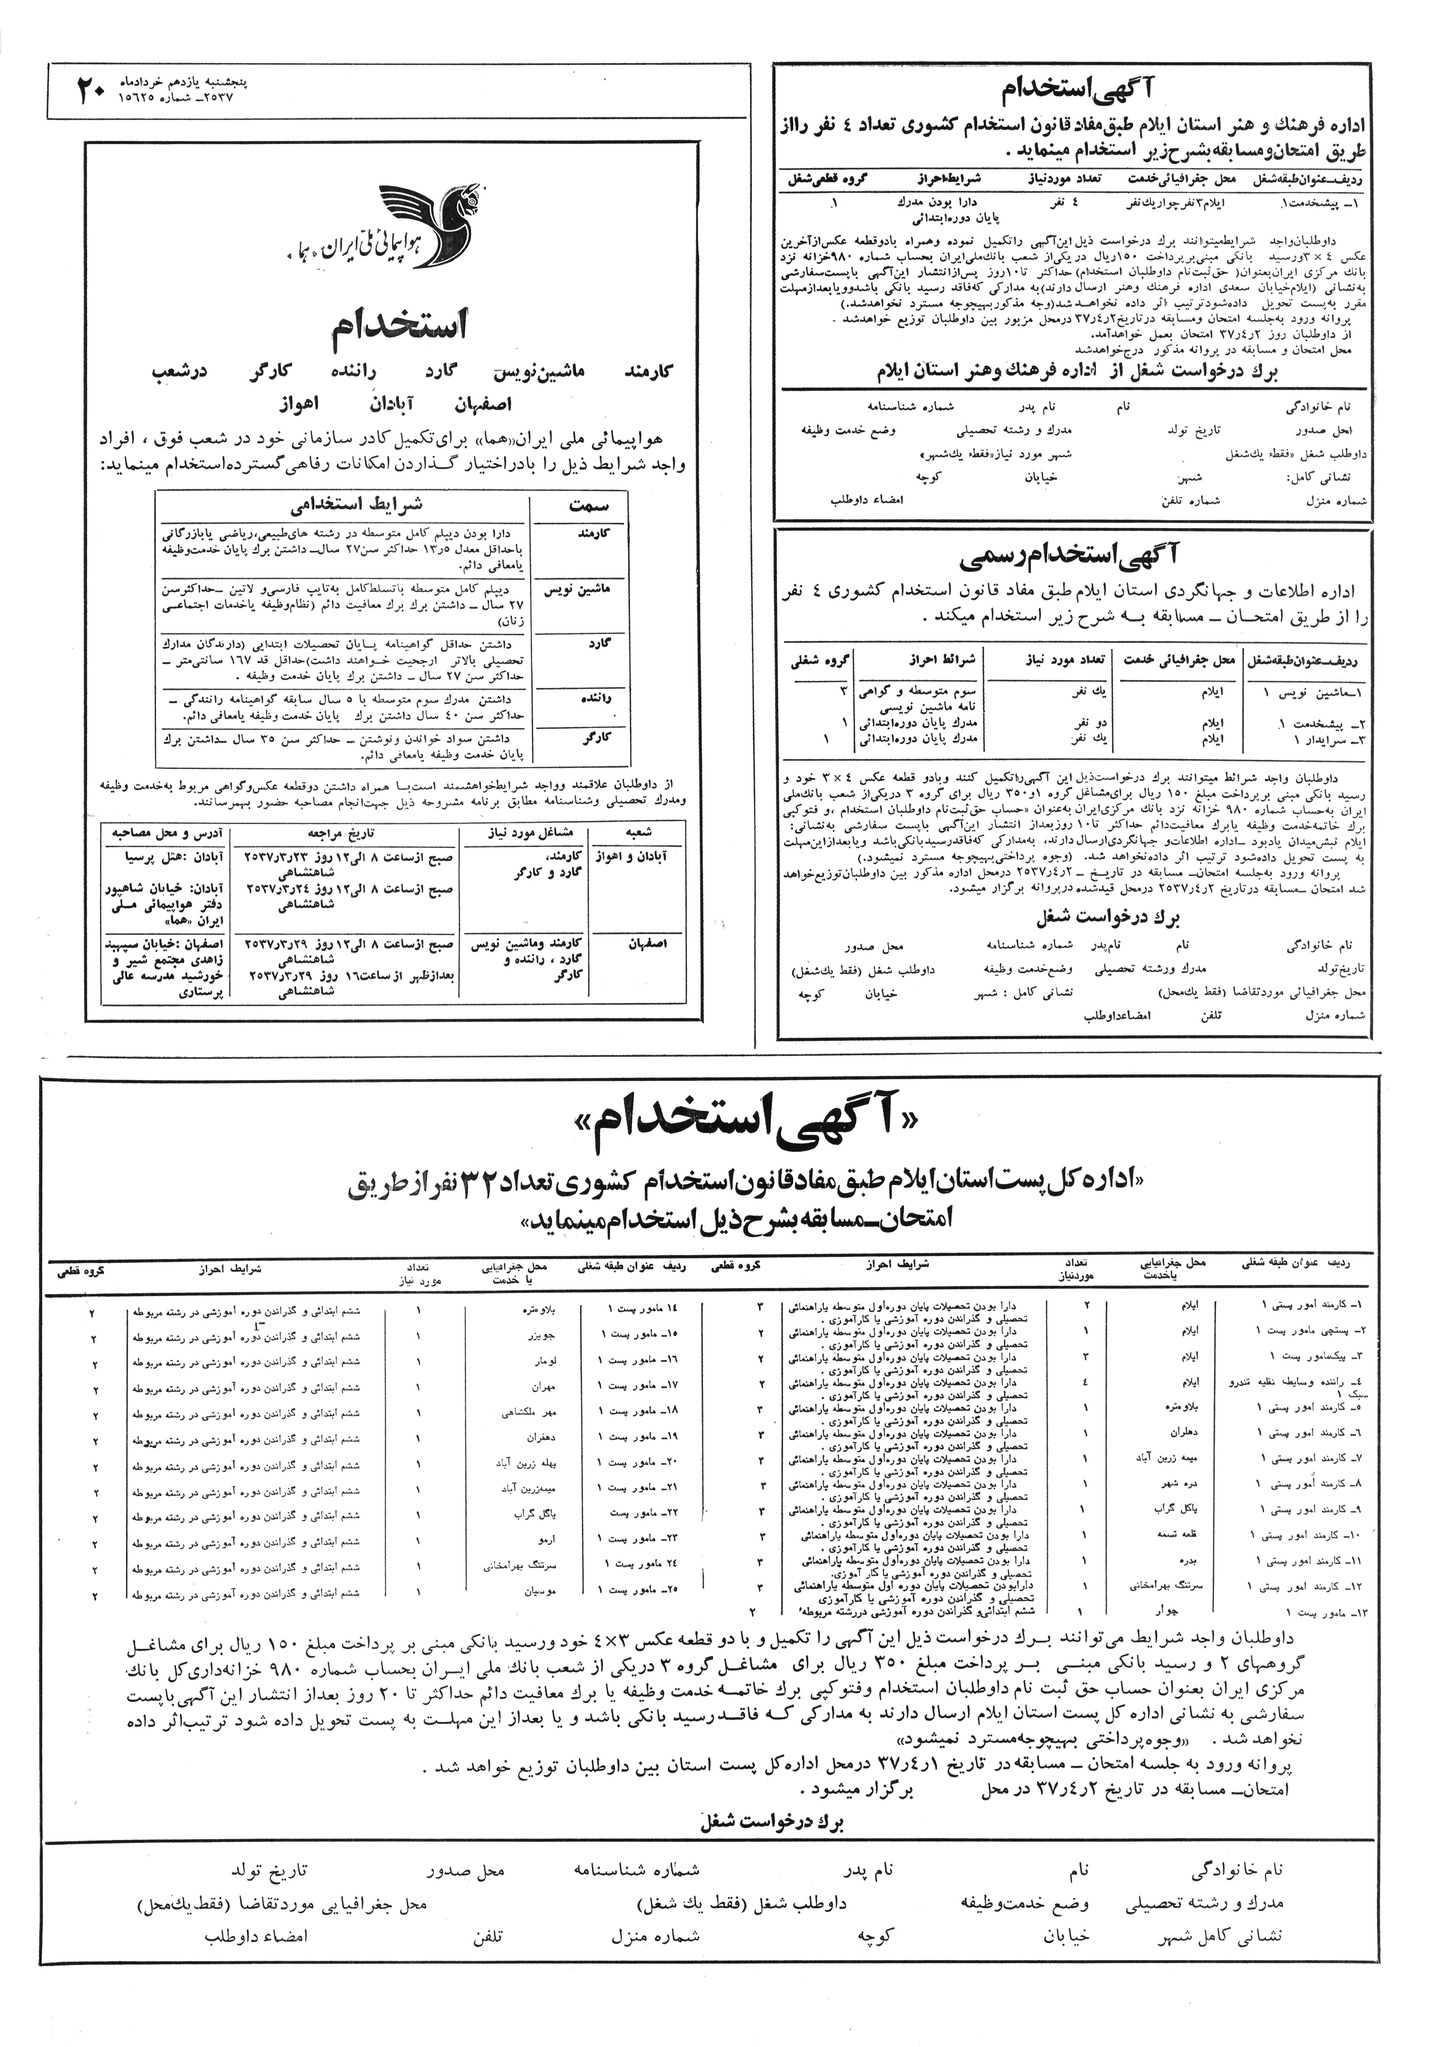 پنجشنبه یازدهم خردادماه
۲۵۳۷ـ شماره ۱۵۶۲۵
۲۰
آگهی استخدام
اداره فرهنگ و هنر استان ایلام طبق مفاد قانون استخدام کشوری تعداد ٤ نفر را از
طریق امتحان و مسابقه بشرح زیر استخدام مینماید .
ردیف ـ عنوان طبقه شغل محل جغرافیائی خدمت تعداد مورد نیاز شرایط احراز گروه قطعی شغل
۱ـ پیشخدمت ۱ ایلام ۳ نفر چوار یك نفر ٤ نفر دارا بودن مدرك ۱
پایان دوره ابتدائی
داوطلبان واجد شرایط میتوانند برك درخواست ذیل این آگهی را تکمیل نموده و همراه بادو قطعه عکس از آخرین
عکس ٤ × ۳ و رسید بانکی مبنی بر پرداخت ۱۵۰ ریال در یکی از شعب بانك ملی ایران بحساب شماره ۹۸۰ خزانه نزد
بانك مرکزی ایران بعنوان ( حق ثبت نام داوطلبان استخدام) حداکثر تا ۱۰ روز پس از انتشار این آگهی با پست سفارشی
به نشانی (ایلام خیابان سعدی اداره فرهنك و هنر ارسال دارند) به مدارکی که فاقد رسید بانکی باشد و یا بعد از مهلت
مقرر به پست تحویل داده شود ترتیب اثر داده نخواهد شد (وجه مذکور بهیچوجه مسترد نخواهد شد.)
پروانه ورود به جلسه امتحان و مسابقه در تاریخ ۳۷ر٤ر۲ در محل مزبور بین داوطلبان توزیع خواهد شد .
از داوطلبان روز ۳۷ر٤ر۲ امتحان بعمل خواهد آمد.
محل امتحان و مسابقه در پروانه مذکور درج خواهد شد
برك درخواست شغل از اداره فرهنك و هنر استان ایلام
نام خانوادگی نام نام پدر شماره شناسنامه
محل صدور تاریخ تولد مدرك و رشته تحصیلی وضع خدمت وظیفه
داوطلب شغل «فقط یك شغل شهر مورد نیاز «فقط یك شهر»
نشانی کامل: شهر خیابان کوچه
شماره منزل شماره تلفن امضاء داوطلب
آگهی استخدام رسمی
اداره اطلاعات و جهانگردی استان ایلام طبق مفاد قانون استخدام کشوری ٤ نفر
را از طریق امتحان ـ مسابقه به شرح زیر استخدام میکند .
ردیف ـ عنوان طبقه شغل محل جغرافیائی خدمت تعداد مورد نیاز شرائط احراز گروه شغلی
۱ـ ماشین نویس ۱ ایلام یك نفر سوم متوسطه و گواهی ۳
نامه ماشین نویسی
۲ـ پیشخدمت ۱ ایلام دو نفر مدرك پایان دوره ابتدائی ۱
۳ـ سرایدار ۱ ایلام یك نفر مدرك پایان دوره ابتدائی ۱
داوطلبان واجد شرائط میتوانند برك درخواست ذیل این آگهی را تکمیل کنند و بادو قطعه عکس ٤ × ۳ خود و
رسید بانکی مبنی بر پرداخت مبلغ ۱۵۰ ریال برای مشاغل گروه ۱ و ۳۵۰ ریال برای گروه ۳ در یکی از شعب بانك ملی
ایران به حساب شماره ۹۸۰ خزانه نزد بانك مرکزی ایران به عنوان «حساب حق ثبت نام داوطلبان استخدام ، و فتوکپی
برك خاتمه خدمت وظیفه یا برك معافیت دائم حداکثر تا ۱۰ روز بعد از انتشار این آگهی با پست سفارشی به نشانی:
ایلام نبش میدان یادبود ـ اداره اطلاعات و جهانگردی ارسال دارند، به مدارکی که فاقد رسید بانکی باشد و یا بعد از این مهلت
به پست تحویل داده شود ترتیب اثر داده نخواهد شد. (وجوه پرداختی بهیچوجه مسترد نمیشود.)
پروانه ورود به جلسه امتحان ـ مسابقه در تاریخ ـ ۲۵۳۷ر٤ر۲ در محل اداره مذکور بین داوطلبان توزیع خواهد
شد امتحان ـ مسابقه در تاریخ ۲۵۳۷ر٤ر۲ در محل قید شده در پروانه برگزار میشود.
برك درخواست شغل
نام خانوادگی نام نام پدر شماره شناسنامه محل صدور
تاریخ تولد مدرك و رشته تحصیلی وضع خدمت وظیفه داوطلب شغل (فقط یك شغل)
محل جغرافیائی مورد تقاضا (فقط یك محل) نشانی کامل : شهر خیابان کوچه
شماره منزل تلفن امضاء داوطلب
هواپیمائی ملی ایران «هما»
استخدام
کارمند ماشین نویس گارد راننده کارگر در شعب
اصفهان آبادان اهواز
هواپیمائی ملی ایران «هما» برای تکمیل کادر سازمانی خود در شعب فوق ، افراد
واجد شرایط ذیل را با در اختیار گذاردن امکانات رفاهی گسترده استخدام مینماید:
سمت شرایط استخدامی
کارمند دارا بودن دیپلم کامل متوسطه در رشته های طبیعی، ریاضی یا بازرگانی
با حداقل معدل ۱۳ر۵ حداکثر سن ۲۷ سال ـ داشتن برك پایان خدمت وظیفه
یا معافی دائم.
ماشین نویس دیپلم کامل متوسطه با تسلط کامل به تایپ فارسی و لاتین ـ حداکثر سن
۲۷ سال ـ داشتن برك برك معافیت دائم (نظام وظیفه یا خدمات اجتماعی
زنان)
گارد داشتن حداقل گواهینامه پایان تحصیلات ابتدایی (دارندگان مدارك
تحصیلی بالاتر ارجحیت خواهند داشت) حداقل قد ۱٦۷ سانتی متر ـ
حداکثر سن ۲۷ سال ـ داشتن برك پایان خدمت وظیفه .
راننده داشتن مدرك سوم متوسطه با ۵ سال سابقه گواهینامه رانندگی ـ
حداکثر سن ٤۰ سال داشتن برك پایان خدمت وظیفه یا معافی دائم.
کارگر داشتن سواد خواندن و نوشتن ـ حداکثر سن ۳۵ سال ـ داشتن برك
پایان خدمت وظیفه یا معافی دائم.
از داوطلبان علاقمند و واجد شرایط خواهشمند است با همراه داشتن دو قطعه عکس و گواهی مربوط به خدمت وظیفه
و مدرك تحصیلی و شناسنامه مطابق برنامه مشروحه ذیل جهت انجام مصاحبه حضور بهمرسانند.
شعبه مشاغل مورد نیاز تاریخ مراجعه آدرس و محل مصاحبه
آبادان و اهواز کارمند، صبح از ساعت ۸ الی ۱۲ روز ۲۵۳۷ر۳ر۲۳ آبادان :هتل پرسیا
گارد و کارگر شاهنشاهی
صبح از ساعت ۸ الی ۱۲ روز ۲۵۳۷ر۳ر۲٤ آبادان: خیابان شاهپور
شاهنشاهی دفتر هواپیمائی ملی
ایران «هما»
اصفهان کارمند و ماشین نویس صبح از ساعت ۸ الی ۱۲ روز ۲۵۳۷ر۳ر۲۹ اصفهان :خیابان سپهبد
گارد ، راننده و شاهنشاهی زاهدی مجتمع شیر و
کارگر بعد از ظهر از ساعت ۱٦ روز ۲۵۳۷ر۳ر۲۹ خورشید مدرسه عالی
شاهنشاهی پرستاری
«آگهی استخدام»
«اداره کل پست استان ایلام طبق مفاد قانون استخدام کشوری تعداد ۳۲ نفر از طریق
امتحان ـ مسابقه بشرح ذیل استخدام مینماید»
ردیف عنوان طبقه شغلی محل جغرافیایی یا خدمت تعداد مورد نیاز شرایط احراز گروه قطعی
۱ـ کارمند امور پستی ۱ ایلام ۲ دارا بودن تحصیلات پایان دوره اول متوسطه یا راهنمائی ۳
تحصیلی و گذراندن دوره آموزشی یا کارآموزی .
۲ـ پستچی مامور پست ۱ ایلام ۱ دارا بودن تحصیلات پایان دوره اول متوسطه یا راهنمائی ۲
تحصیلی و گذراندن دوره آموزشی یا کارآموزی .
۳ـ پیک مامور پست ۱ ایلام ۳ دارا بودن تحصیلات پایان دوره اول متوسطه یا راهنمائی ۲
تحصیلی و گذراندن دوره آموزشی یا کارآموزی .
٤ـ راننده وسایط نقلیه تندرو ایلام ٤ دارا بودن تحصیلات پایان دوره اول متوسطه یا راهنمائی ۲
سبک ۱ تحصیلی و گذراندن دوره آموزشی یا کارآموزی .
۵ـ کارمند امور پستی ۱ بلاوه تره ۱ دارا بودن تحصیلات پایان دوره اول متوسطه یا راهنمائی ۳
تحصیلی و گذراندن دوره آموزشی یا کارآموزی .
٦ـ کارمند امور پستی ۱ دهلران ۱ دارا بودن تحصیلات پایان دوره اول متوسطه یا راهنمائی ۳
تحصیلی و گذراندن دوره آموزشی یا کارآموزی .
۷ـ کارمند امور پستی ۱ میمه زرین آباد ۱ دارا بودن تحصیلات پایان دوره اول متوسطه یا راهنمائی ۳
تحصیلی و گذراندن دوره آموزشی یا کارآموزی .
۸ـ کارمند امور پستی ۱ دره شهر ۱ دارا بودن تحصیلات پایان دوره اول متوسطه یا راهنمائی ۳
تحصیلی و گذراندن دوره آموزشی یا کارآموزی .
۹ـ کارمند امور پستی ۱ پاکل گراب ۱ دارا بودن تحصیلات پایان دوره اول متوسطه یا راهنمائی ۳
تحصیلی و گذراندن دوره آموزشی یا کارآموزی .
۱۰ـ کارمند امور پستی ۱ قلعه تسمه ۱ دارا بودن تحصیلات پایان دوره اول متوسطه یا راهنمائی ۳
تحصیلی و گذراندن دوره آموزشی یا کارآموزی .
۱۱ـ کارمند امور پستی ۱ بدره ۱ دارا بودن تحصیلات پایان دوره اول متوسطه یا راهنمائی ۳
تحصیلی و گذراندن دوره آموزشی یا کارآموزی.
۱۲ـ کارمند امور پستی ۱ سرتنگ بهرامخانی ۱ دارا بودن تحصیلات پایان دوره اول متوسطه یا راهنمائی ۳
تحصیلی و گذراندن دوره آموزشی یا کارآموزی
۱۳ـ مامور پست ۱ چوار ۱ ششم ابتدائی و گذراندن دوره آموزشی در رشته مربوطه ۲
ردیف عنوان طبقه شغلی محل جغرافیایی یا خدمت تعداد مورد نیاز شرایط احراز گروه قطعی
۱٤ مامور پست ۱ بلاوه تره ۱ ششم ابتدائی و گذراندن دوره آموزشی در رشته مربوطه ۲
۱۵ـ مامور پست ۱ جویزر ۱ ششم ابتدائی و گذراندن دوره آموزشی در رشته مربوطه ۲
۱٦ـ مامور پست ۱ لومار ۱ ششم ابتدائی و گذراندن دوره آموزشی در رشته مربوطه ۲
۱۷ـ مامور پست ۱ مهران ۱ ششم ابتدائی و گذراندن دوره آموزشی در رشته مربوطه ۲
۱۸ـ مامور پست ۱ مهر ملکشاهی ۱ ششم ابتدائی و گذراندن دوره آموزشی در رشته مربوطه ۲
۱۹ـ مامور پست ۱ دهلران ۱ ششم ابتدائی و گذراندن دوره آموزشی در رشته مربوطه ۲
۲۰ـ مامور پست ۱ پهله زرین آباد ۱ ششم ابتدائی و گذراندن دوره آموزشی در رشته مربوطه ۲
۲۱ـ مامور پست ۱ میمه زرین آباد ۱ ششم ابتدائی و گذراندن دوره آموزشی در رشته مربوطه ۲
۲۲ـ مامور پست پاکل گراب ۱ ششم ابتدائی و گذراندن دوره آموزشی در رشته مربوطه ۲
۲۳ـ مامور پست ۱ ارمو ۱ ششم ابتدائی و گذراندن دوره آموزشی در رشته مربوطه ۲
۲٤ مامور پست ۱ سرتنگ بهرامخانی ۱ ششم ابتدائی و گذراندن دوره آموزشی در رشته مربوطه ۲
۲۵ـ مامور پست ۱ موسیان ۱ ششم ابتدائی و گذراندن دوره آموزشی در رشته مربوطه ۲
داوطلبان واجد شرایط می توانند برك درخواست ذیل این آگهی را تکمیل و با دو قطعه عکس ۳×٤ خود و رسید بانکی مبنی بر پرداخت مبلغ ۱۵۰ ریال برای مشاغل
گروههای ۲ و رسید بانکی مبنی بر پرداخت مبلغ ۳۵۰ ریال برای مشاغل گروه ۳ در یکی از شعب بانك ملی ایران بحساب شماره ۹۸۰ خزانه داری کل بانك
مرکزی ایران بعنوان حساب حق ثبت نام داوطلبان استخدام و فتوکپی برك خاتمه خدمت وظیفه یا برك معافیت دائم حداکثر تا ۲۰ روز بعد از انتشار این آگهی با پست
سفارشی به نشانی اداره کل پست استان ایلام ارسال دارند به مدارکی که فاقد رسید بانکی باشد و یا بعد از این مهلت به پست تحویل داده شود ترتیب اثر داده
نخواهد شد . «وجوه پرداختی بهیچوجه مسترد نمیشود»
پروانه ورود به جلسه امتحان ـ مسابقه در تاریخ ۳۷ر٤ر۱ در محل اداره کل پست استان بین داوطلبان توزیع خواهد شد .
امتحان ـ مسابقه در تاریخ ۳۷ر٤ر۲ در محل برگزار میشود .
برك درخواست شغل
نام خانوادگی نام نام پدر شماره شناسنامه محل صدور تاریخ تولد
مدرك و رشته تحصیلی وضع خدمت وظیفه داوطلب شغل (فقط یك شغل) محل جغرافیایی مورد تقاضا (فقط یك محل)
نشانی کامل شهر خیابان کوچه شماره منزل تلفن امضاء داوطلب